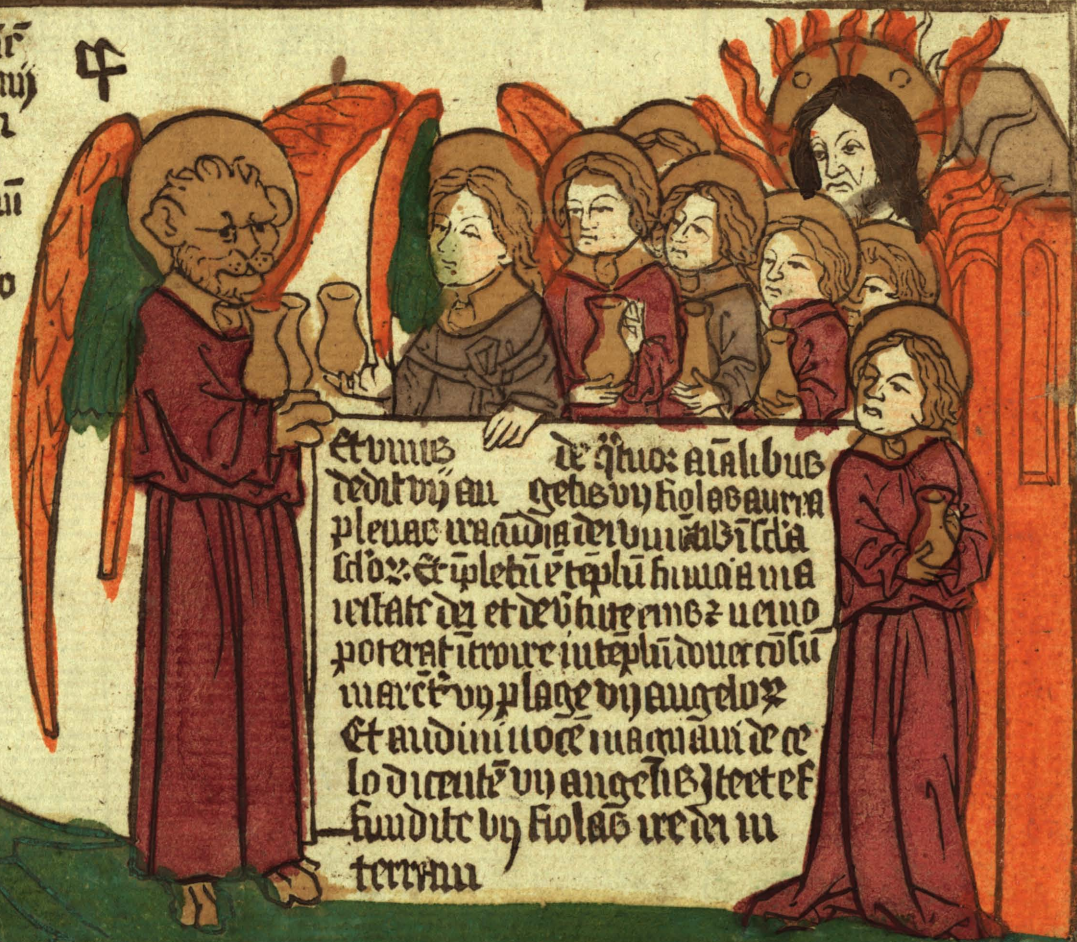 Et vnus de q̄tuor aīalibus
dedit vij an gelis vij fiolas aurea
plenas iracūdia dei viuētis ī sc̄la
sc̄loꝝ. Et īpletū ē tēplū fumo a ma
iestate dei et de v̄tute eius ⁊ nemo
poterat ītroire in tēplū donec cōsū
marēt vij plage vij angeloꝝ
Et audiui uocē magnā de ce
lo dicentē vij angelis Ite et ef
fundite vij fiolas ire dei in
terram